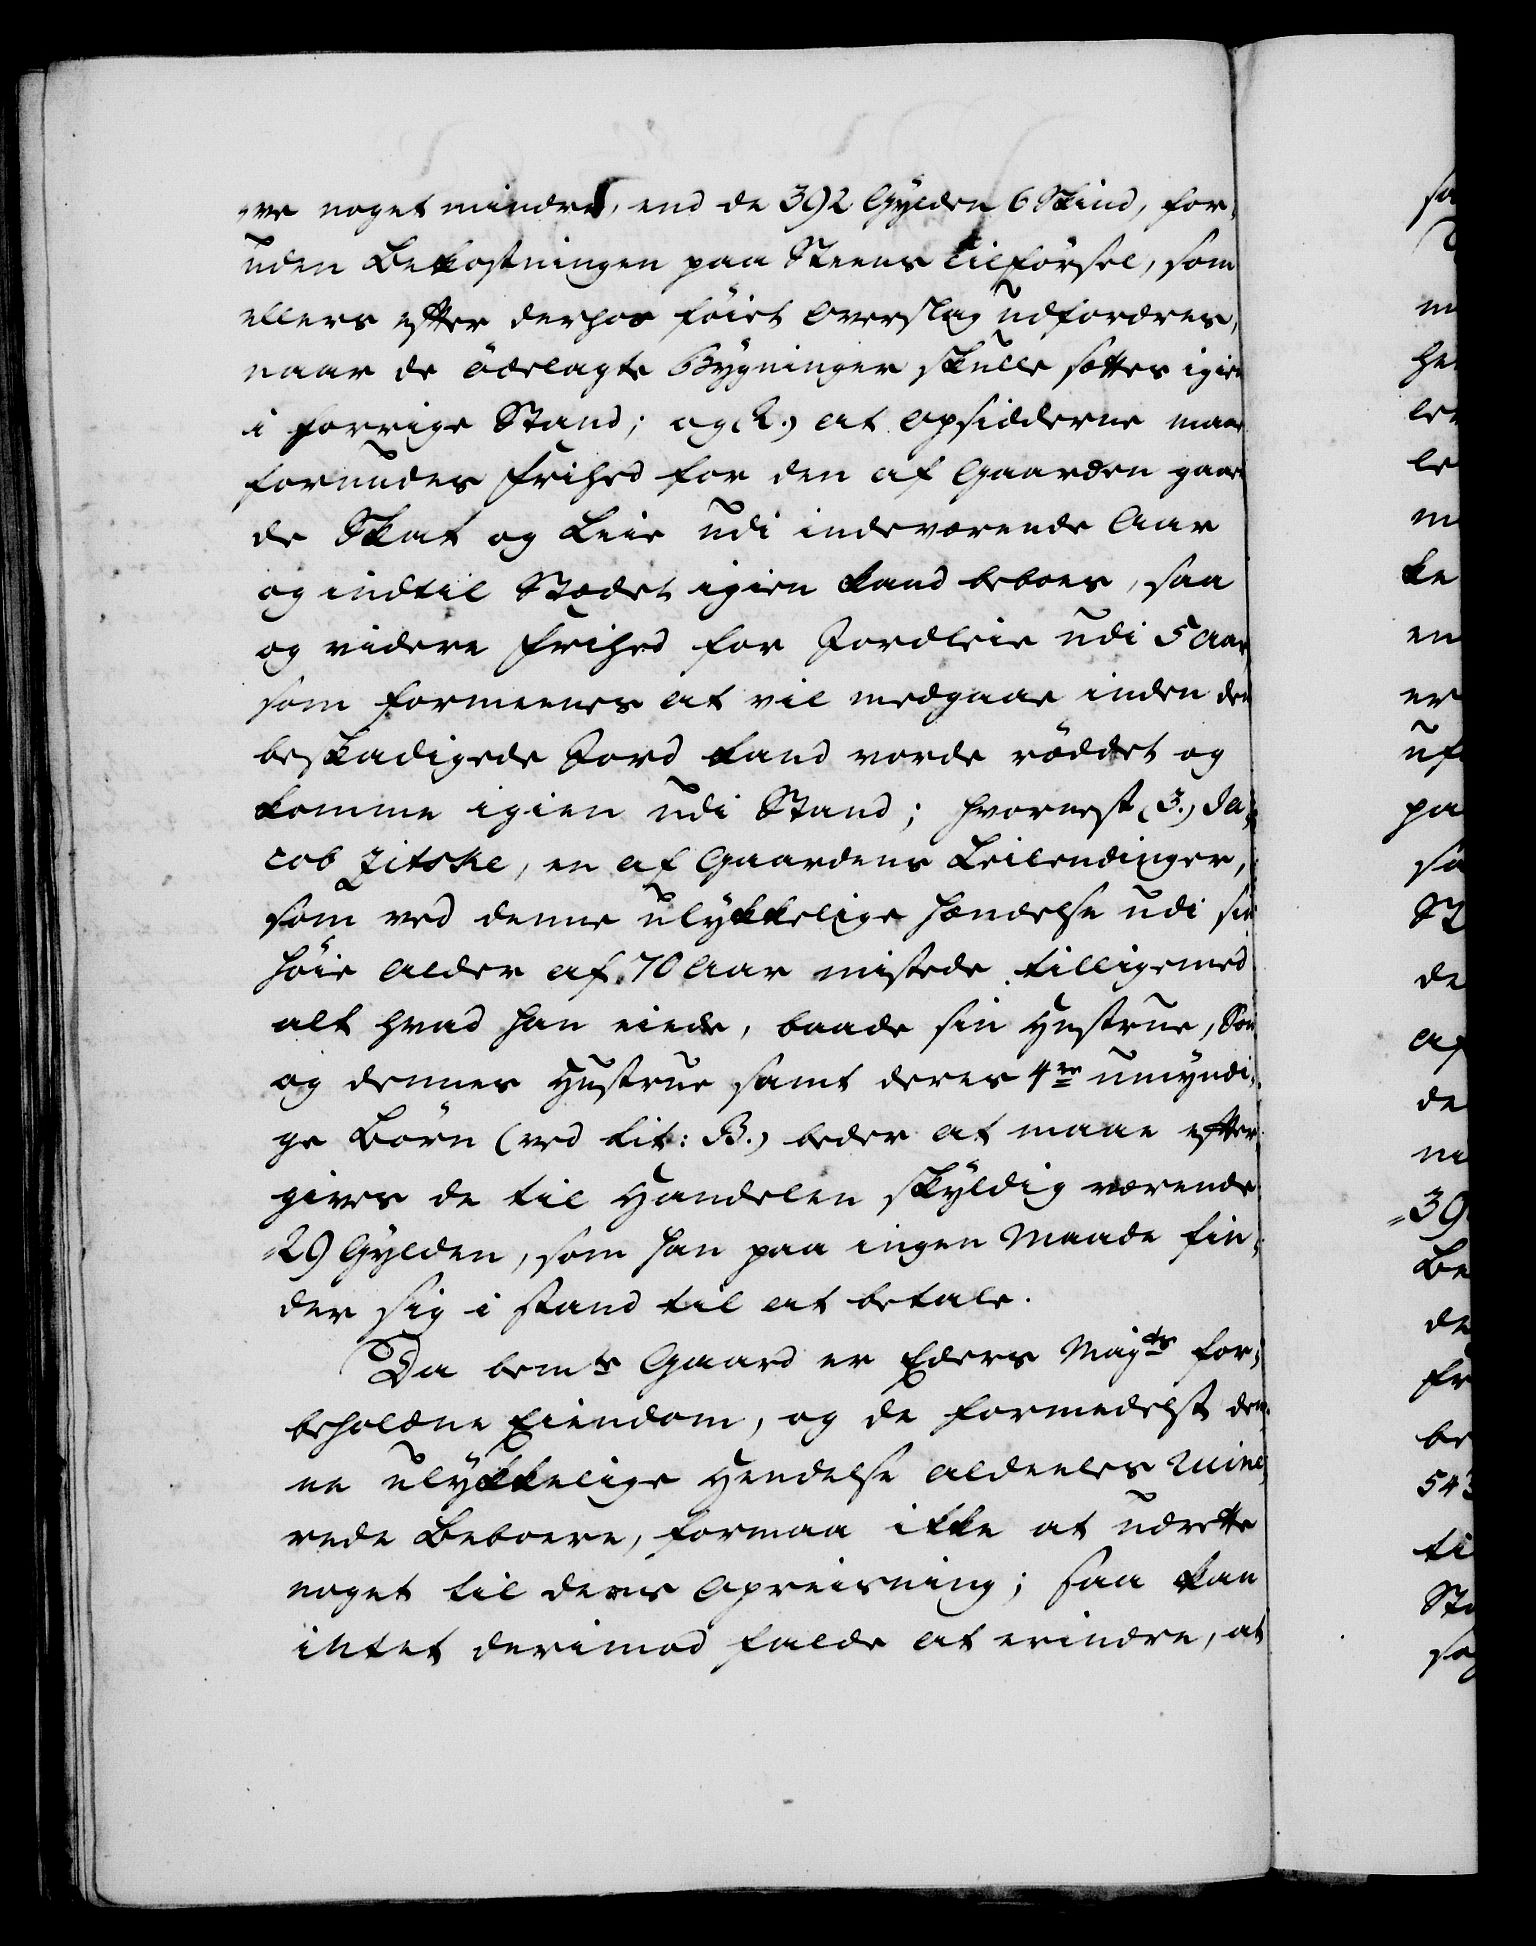 ve noget mindre, end de 392 Gylden 6 Skind, for-
uden Bekostningen paa Steens Tilförsel, som
ellers efter derhos föiet Overslag udfordres,
naar de ödelagte Bygninger skulle sættes igien
i forrige Stand; og (2.) at Opsidderne maae
forundes Frihed for den af Gaarden gaaen
de Skat og Leie udi indeværende Aar
og indtil Stædet igien kand beboes, saa
og videre Frihed for Jordleie udi 5 Aar
som formeenes at vil medgaae inden den
beskadigede Jord kand vorde röddet og
komme igien udi Stand; hvornest (3.) Ja-
cob Zitske, en af Gaardens Leilendinger,
som ved denne ulykkelige Hændelse udi sin
höie Alder af 70 Aar mistede tilligemed
alt hvad han eiede, baade sin Hustrue, Sön
og dennes Hustrue samt deres 4re umyndi-
ge Börn (ved Lit: B.) beder at maae efter-
gives de til Handelen skyldig værende
29 Gylden, som han paa ingen Maade fin-
der sig i stand til at betale.
Da bemte Gaard er Eders Mayts for-
beholdne Eiendom, og de formedelst den-
ne ulykkelige Hendelse aldeeles Ruine-
rede Beboere, formaa ikke at udrette
noget til deres Opreisning; saa kan
intet derimod falde at erindre, at